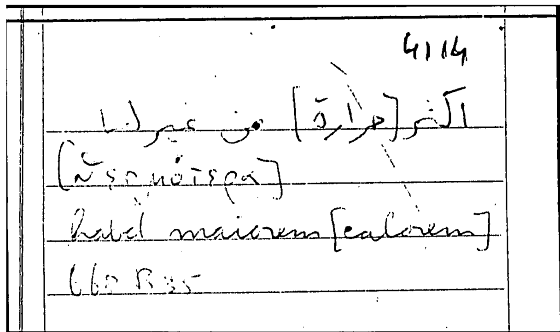 4114
اكثر [حرارة] من غيرها
[θερμότερα]
habet maiorem [calorem]
B35